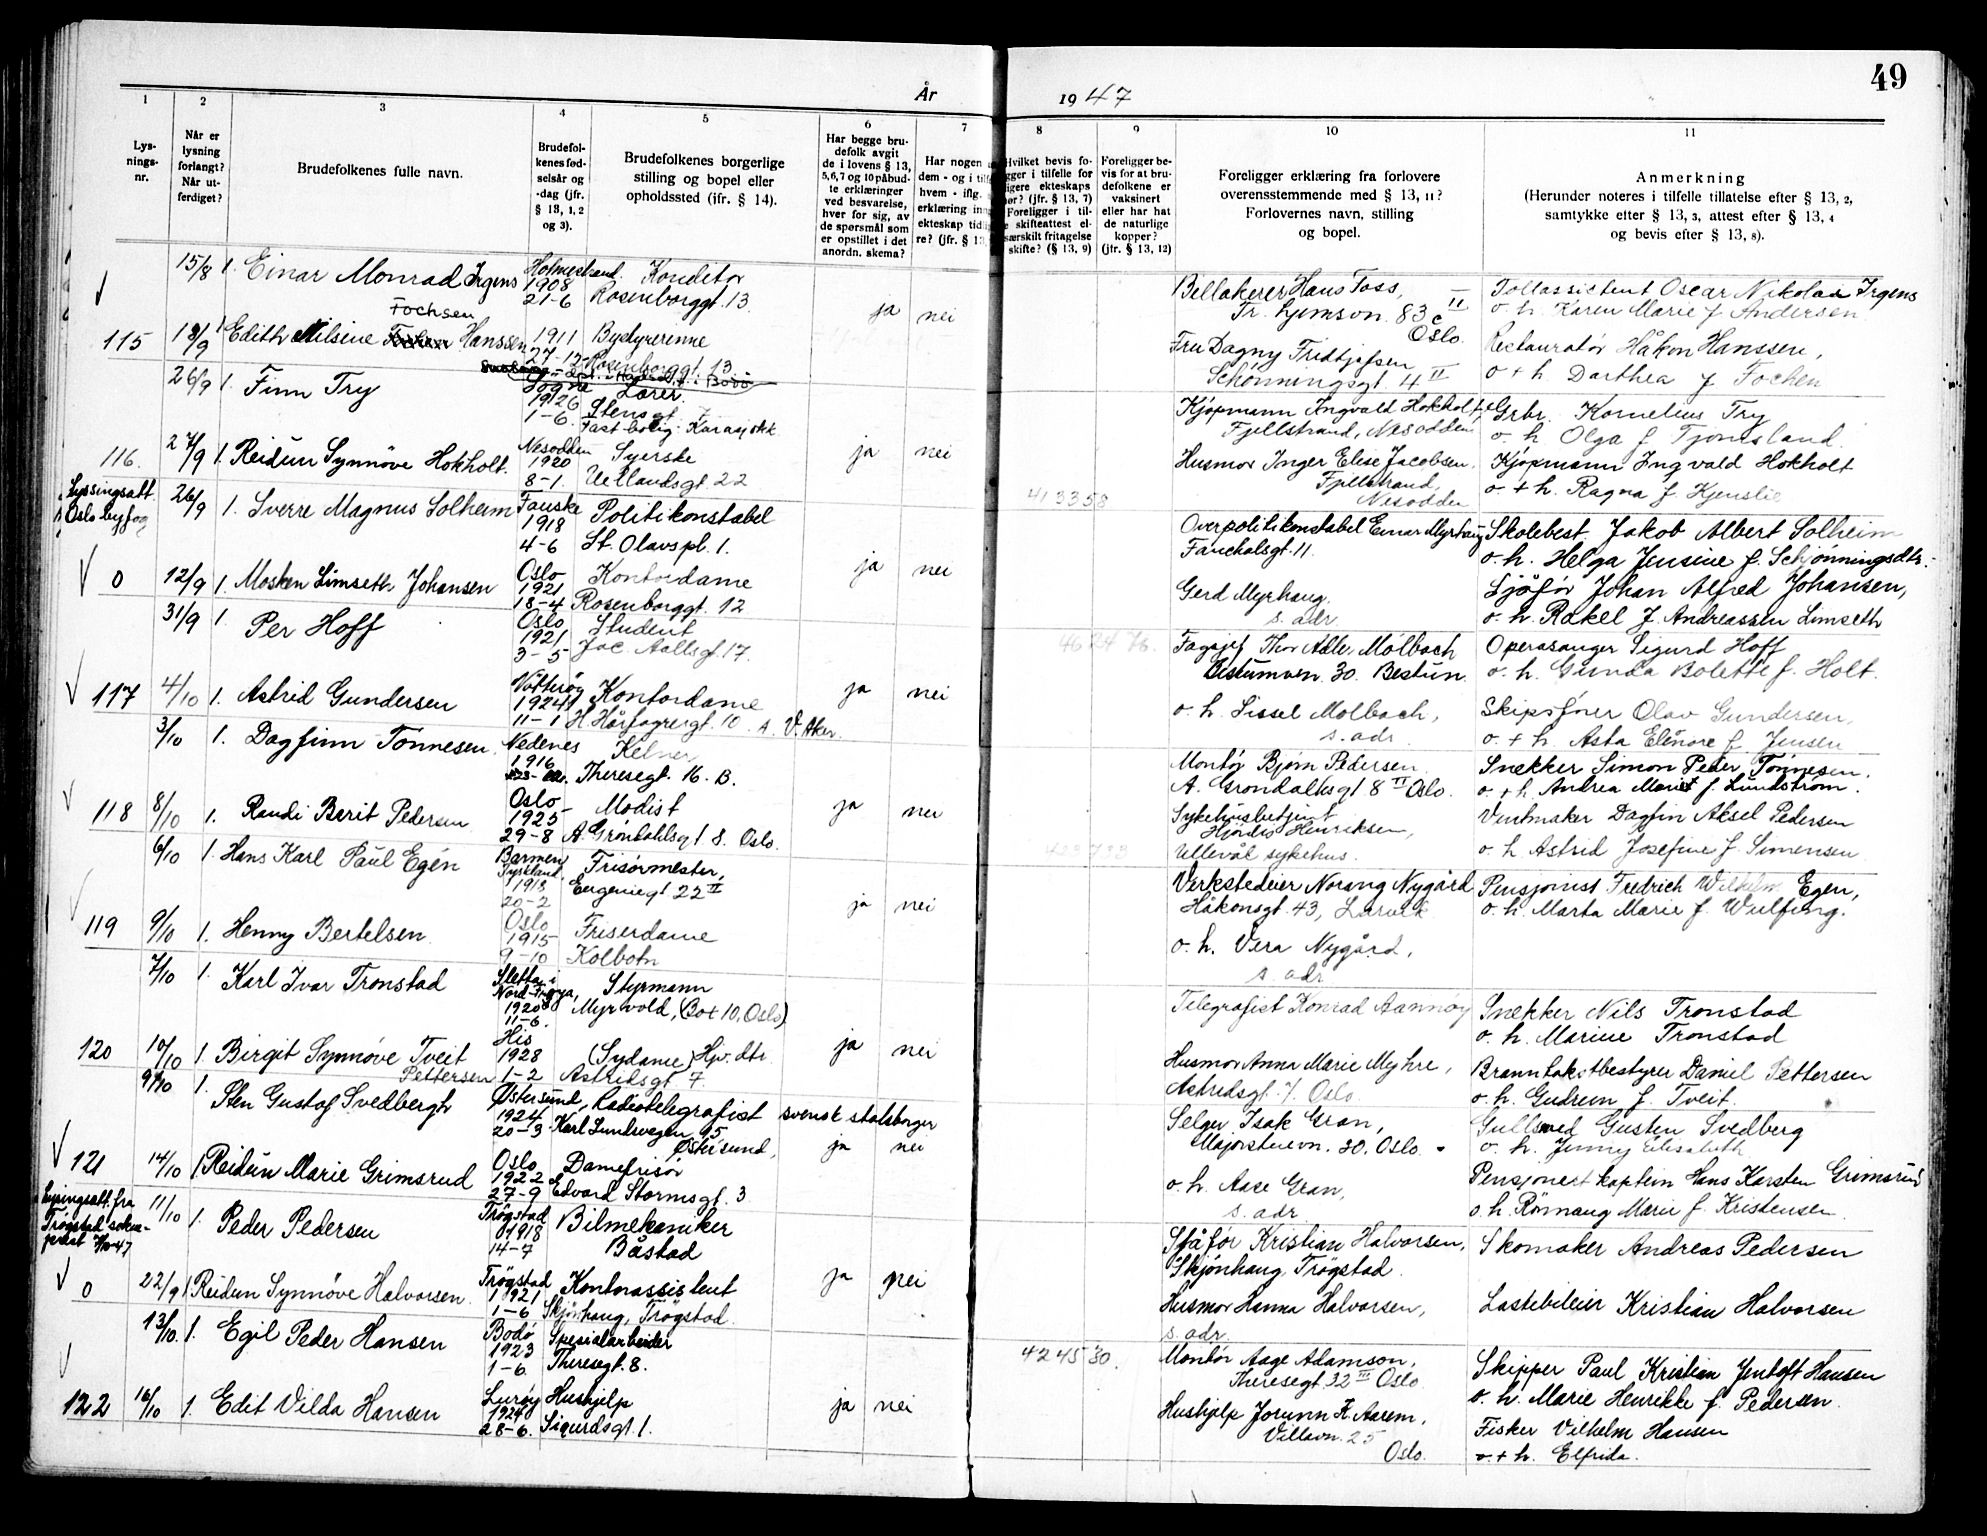 49
År 1947
1 2 3 4 5 6 7 8 9 10 11
Lys-
nings-
nr.
Når er
lysning
forlangt?
Når ut-
ferdiget?
Brudefolkenes fulle navn.
Brudefol-
kenes fød-
selsår og
-dag (jfr.
§ 13, 1, 2
og 3).
Brudefolkenes borgerlige
stilling og bopel eller
opholdssted (jfr. § 14).
Har begge bru-
defolk avgit
de i lovens § 13,
5,6,7 og 10 påbud-
te erklæringer
ved besvarelse,
hver for sig, av
de spørsmål som
er opstillet i det
anordn. skema?
Har nogen
dem - og i tilf
hvem - iflg.
erklæring inn
ekteskap tid
re? (jfr. § 13
Hvilket bevis fo-
gger i tilfelle for
ligere ekteskaps
hør? (jfr. § 13, 7)
Foreligger i til-
skifteattest el-
særskilt fritagelse
skifte? (§ 13, 9)
Foreligger be-
vis for at bru-
defolkene er
vaksinert
eller har hat
de naturlige
kopper?
(jfr. § 13, 12)
Foreligger erklæring fra forlovere
overensstemmende med § 13, 11?
Forlovernes navn, stilling
og bopel.
Anmerkning
(Herunder noteres i tilfelle tillatelse efter § 13, 2,
samtykke efter § 13, 3, attest efter § 13, 4
og bevis efter § 13, 8).
15/8 1. Einar Monrad Irgens Holmestrand. 1908 21-6 Konditor Rosenborggt. 13 ja nei
Billakerer Hans Foss, Tr. Hjemsvn. 83 c II Oslo
Tollassistent Oscar Nikolai Irgens
o. h. Karen Marie f. Andersen
115 18/9 1 Edith Nilsine Fochsen Hanssen 1911 27-12 Bestyrerinne Rosenborggt. 13
Fru Dagny Fridtjofsen Schønningsgt. 4 II
Restauratør Håkon Hanssen,
o + h Dorthea f. Fochen
26/9 1. Finn Try Sogne 1926 1-6 Lærer. Stensgt. 7 Fast bolig: Karasjokk
Kjøpmann Ingvald Hokholt, Fjellstrand, Nesodden
Grbr. Kornelius Try
o. h. Olga f. Tjomsland.
116. 27/9 1. Reidun Synnöve Hokholt. Nesodden 1920 8-1. Syerske Uellandsgt. 22 ja nei
Husmor Inger Elise Jacobsen, Fjellstrand, Nesodden
Kjøpmann Ingvald Hokholt
o. + h. Ragna f. Kjenslie
Lysningsatt. Oslo byfog
26/9 1. Sverre Magnus Solheim Fauske 1918 4-6 Politikonstabel St. Olavspl. 1. 413358
Overpolitikonstabel Einar Myrhaug Fauchalsgt. 11.
Skolebest. Jakob Albert Solheim
o. h. Helga Jensine f. Schjønningsdtr.
0 12/9 1. Mosken Limseth Johansen Oslo 1921 18-4 Kontordame Rosenborggt. 12 ja nei
Gerd Myrhaug. s. adr.
Sjåfør Johan Alfred Johansen,
o. h. Rakel f. Andreassen Limseth
31/9 1. Per Hoff Oslo 1921 3-5 Student Jac. Aallsgt. 17. 46 24 76.
Fagsjef Thor Adler Mølbach Bestumvn. 30. Bestun.
Operasanger Sigurd Hoff
o. h. Gunda Bolette f. Holt.
117 4/10 1. Astrid Gundersen 1924 11-1 Kontordame H. Hårfagresgt. 10. A. V. Aker. ja nei
o. h. Sissel Mølbach, s. adr.
Skipsfører Olav Gundersen,
o. + h. Asta Elenore f. Jensen
3/10 1. Dagfinn Tönnesen. Nedenes 1916 Kelner Theresegt. 16. B.
Montör Bjørn Pedersen A. Grøndahlsgt 8 II Oslo.
Snekker Simon Peder Tönnesen.
o. + h. Andrea Marie f. Lundström.
118 8/10 1. Randi Berit Pedersen Oslo 1925 29-8 Modist A. Gröndahlsgt 8. Oslo. ja nei
Sykehusbetjent Hjördis Henriksen, Ullevål sykehus.
Ventmaker Dagfin Aksel Pedersen
o. h. Astrid Josefine f. Simensen
6/10 1. Hans Karl Paul Egen Barmen Tyskland. 1913 20-2 Frisørmester, Eugeniegt. 22 II
Verkstedeier Norang Nygård Håkonsgt. 43, Larvik
Pensjonist Fredrich Wilhelm Egen,
o. h. Marta Marie f. Wulfing.
119 9/10 1. Henny Bertelsen Oslo 1915 9-10 Friserdame Kolbotn ja nei
o. h. Vera Nygård, s. adr
7/10 1. Karl Ivar Tronstad Sletta i Nord-Frøya, 1920 11-6. Styrmann Myrvold, (Bot 10, Oslo)
Telegrafist Konrad Aannøy
Snekker Nils Tronstad
o. h. Marine Tronstad
120 10/10 1. Birgit Synnöve Tveit Pettersen His 1928 1-2 (Sydame) Hjv. dtr. Astridsgt 7. ja nei
Husmor Anna Marie Myhre, Astridsgt. 7. Oslo
Branntakstbestyrer Daniel Pettersen
o. h. Gudrun f. Tveit.
9/10 1. Sten Gustaf Svedbergh Østersund, 1924 20-3 Radiotelegrafist svensk statsborger Karl Lundsvegen 15 Østersund,
Selger Isak Gran, Majorstuevn. 30. Oslo.
Gullsmed Gusten Svedberg
o. h. Jenny Elisabeth
121 14/10 1. Reidun Marie Grimsrud Oslo 1922 27-9 Damefrisör Edvard Stormsgt. 3 ja nei
o. h. Aase Gran, s. adr
Pensjonert kaptein Hans Karsten Grimsrud
o. h. Rönnaug Marie f. Kristensen
Lysingsatt. fra Trøgstad sokne-prest
11/10 1. Peder Pedersen Trøgstad 1918 14-7 Bilmekaniker Båstad
Sjåför Kristian Halvorsen, Skjönhaug, Trøgstad.
Skomaker Andreas Pedersen
0 22/9 1 Reidun Synnöve Halvorsen. Trögstad 1921 1-6 Kontorassistent Skjönhaug, Trögstad. ja nei
Husmor Hanna Halvorsen, s. adr.
Lastebileier Kristian Halvorsen
13/10. 1. Egil Peder Hansen Bodö 1923 1-6. Spesialarbeider Theresegt. 8. 424530.
Montör Aage Adamson, Theresegt 32 III Oslo
Skipper Paul Kristian Jentoft Hansen
o. h. Marie Henrikke f. Pedersen.
122 16/10 1. Edit Vilda Hansen Luröy 1924 28-6. Hushjelp Sigurdsgt. 1. ja nei
Hushjelp Jorunn K. Aarem, Villavn. 25 Oslo.
Fisker Vilhelm Hansen
o. + h. Elfrida.